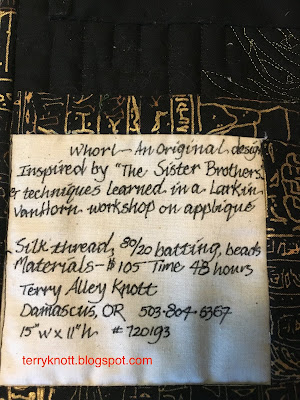 Whorl - An Original design
Inspired by "The Sister Brothers
& techniques learned in a Larkin
VanHorn workshop on appliqué
Silk thread, 80/20 batting, beads
Materials - $105 Time 48 hours
Terry Alley Knott
Damascus, OR 503-804-6367
15"w x 11"h # 720193
terryknott.blogspot.com